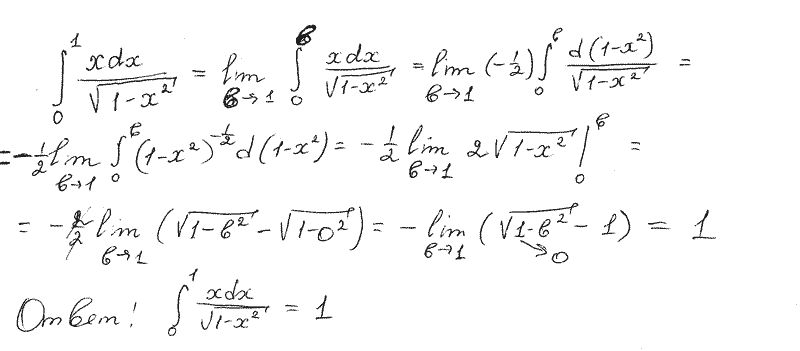 ∫₀¹ xdx/√(1-x²) = lim_{b→1} ∫₀ᵇ xdx/√(1-x²) = lim_{b→1} (-1/2) ∫₀ᵇ d(1-x²)/√(1-x²) =
= -1/2 lim_{b→1} ∫₀ᵇ (1-x²)^{-1/2} d(1-x²) = -1/2 lim_{b→1} 2√(1-x²) |₀ᵇ =
= -2/2 lim_{b→1} (√(1-b²) - √(1-0²)) = - lim_{b→1} (√(1-b²) - 1) = 1
→0
Ответ: ∫₀¹ xdx/√(1-x²) = 1